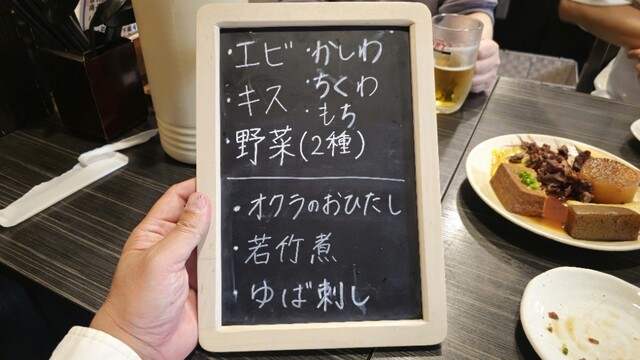 ・エビ ・かしわ
・キス ・ちくわ
・もち
・野菜(2種)
・オクラのおひたし
・若竹煮
・ゆば刺し